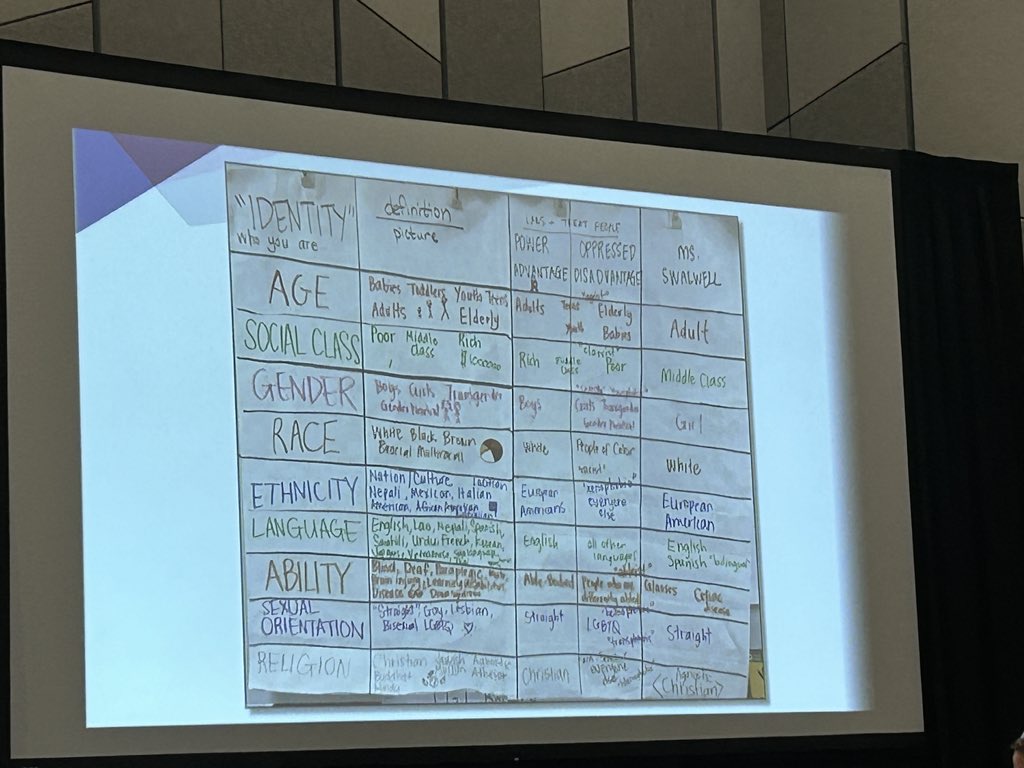 "IDENTITY"
who you are
definition
picture
LAWS + TREAT PEOPLE
POWER
ADVANTAGE
OPPRESSED
DISADVANTAGE
MS.
SWALWELL
AGE
Babies Toddlers Youth Teens
Adults Elderly
Adults Teens
Elderly
Youth Babies
Adult
SOCIAL CLASS
Poor Middle Rich
Class $1000000
Rich Middle
Class
"classist"
Poor
Middle Class
GENDER
Boys Girls Transgender
Gender Neutral
Boys
Girls Transgender
Gender Neutral
Girl
RACE
White Black Brown
Biracial Multiracial
White
People of Color
"racist"
White
ETHNICITY
Nation/Culture
Nepali, Mexican, Italian
American, African
European
Americans
"xenophobic"
everyone
else
European
American
LANGUAGE
English, Lao, Nepali, Spanish,
Swahili, Urdu, French, Korean,
Vietnamese
English
all other
languages
English
Spanish "bilingual"
ABILITY
Blind, Deaf, Paraplegic,
Brain injury, Learning disabilities,
Disease
Able-bodied
"ableist"
People who are
differently abled
Glasses Celiac
disease
SEXUAL
ORIENTATION
"Straight" Gay, Lesbian,
Bisexual LGBTQ
Straight
LGBTQ
"transphobic"
Straight
RELIGION
Christian Jewish
Buddhist Atheist
Hindu
Christian
everyone
else
Agnostic
<Christian>